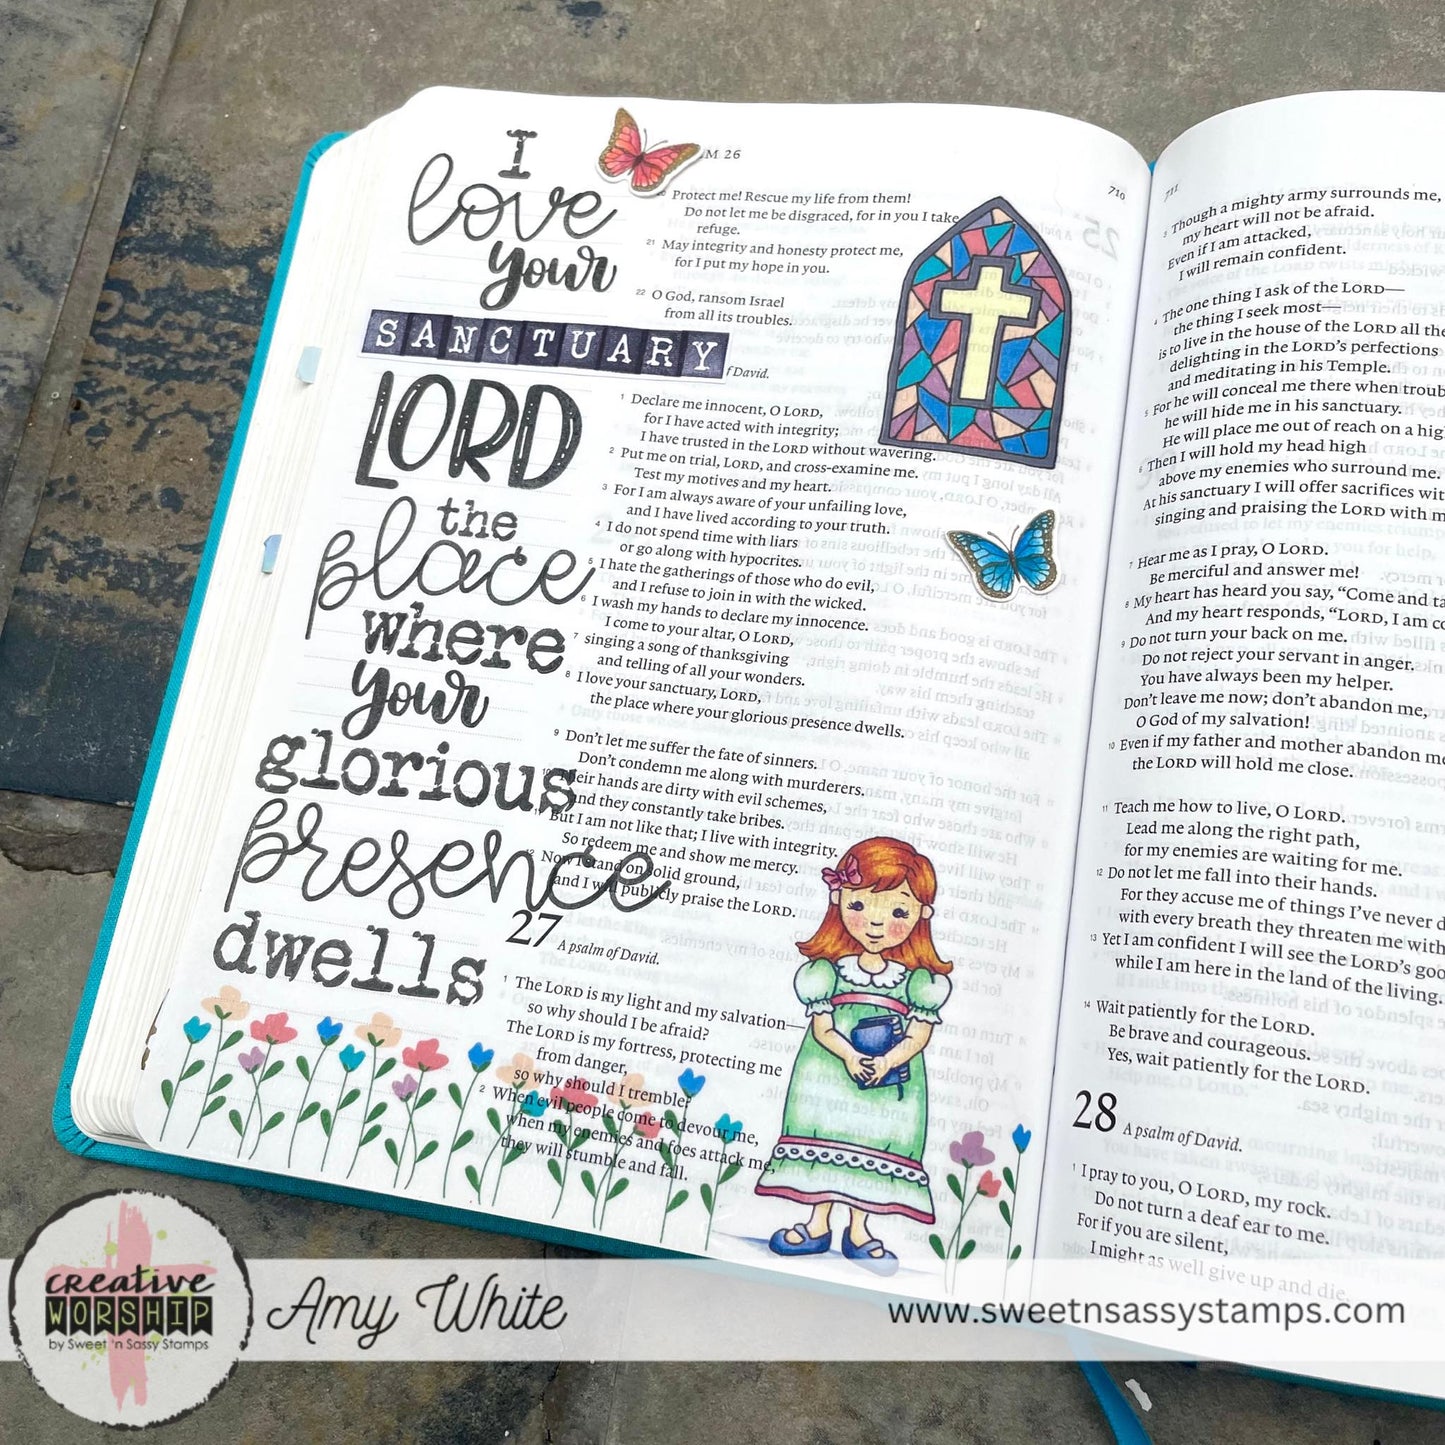 I
love
your
SANCTUARY
LORD
the
place
where
your
glorious
presence
dwells
M 26
710
20 Protect me! Rescue my life from them!
Do not let me be disgraced, for in you I take
refuge.
21 May integrity and honesty protect me,
for I put my hope in you.
22 O God, ransom Israel
from all its troubles.
f David.
1 Declare me innocent, O LORD,
for I have acted with integrity;
I have trusted in the LORD without wavering.
2 Put me on trial, LORD, and cross-examine me.
Test my motives and my heart.
3 For I am always aware of your unfailing love,
and I have lived according to your truth.
4 I do not spend time with liars
or go along with hypocrites.
5 I hate the gatherings of those who do evil,
and I refuse to join in with the wicked.
6 I wash my hands to declare my innocence.
I come to your altar, O LORD,
7 singing a song of thanksgiving
and telling of all your wonders.
8 I love your sanctuary, LORD,
the place where your glorious presence dwells.
9 Don't let me suffer the fate of sinners.
Don't condemn me along with murderers.
10 Their hands are dirty with evil schemes,
and they constantly take bribes.
11 But I am not like that; I live with integrity.
So redeem me and show me mercy.
12 Now I stand on solid ground,
and I will publicly praise the LORD.
27 A psalm of David.
1 The LORD is my light and my salvation—
so why should I be afraid?
The LORD is my fortress, protecting me
from danger,
so why should I tremble?
2 When evil people come to devour me,
when my enemies and foes attack me,
they will stumble and fall.
711
3 Though a mighty army surrounds me,
my heart will not be afraid.
Even if I am attacked,
I will remain confident.
4 The one thing I ask of the LORD—
the thing I seek most—
is to live in the house of the LORD all the
delighting in the LORD's perfections
and meditating in his Temple.
5 For he will conceal me there when troub
he will hide me in his sanctuary.
He will place me out of reach on a hig
6 Then I will hold my head high
above my enemies who surround me.
At his sanctuary I will offer sacrifices wit
singing and praising the LORD with m
7 Hear me as I pray, O LORD.
Be merciful and answer me!
8 My heart has heard you say, "Come and ta
And my heart responds, "LORD, I am co
9 Do not turn your back on me.
Do not reject your servant in anger.
You have always been my helper.
Don't leave me now; don't abandon me,
O God of my salvation!
10 Even if my father and mother abandon me
the LORD will hold me close.
11 Teach me how to live, O LORD.
Lead me along the right path,
for my enemies are waiting for me.
12 Do not let me fall into their hands.
For they accuse me of things I've never d
with every breath they threaten me with
13 Yet I am confident I will see the LORD's goo
while I am here in the land of the living.
14 Wait patiently for the LORD.
Be brave and courageous.
Yes, wait patiently for the LORD.
28 A psalm of David.
1 I pray to you, O LORD, my rock.
Do not turn a deaf ear to me.
For if you are silent,
I might as well give up and die.
creative
WORSHIP
by Sweet 'n Sassy Stamps
Amy White
www.sweetnsassystamps.com